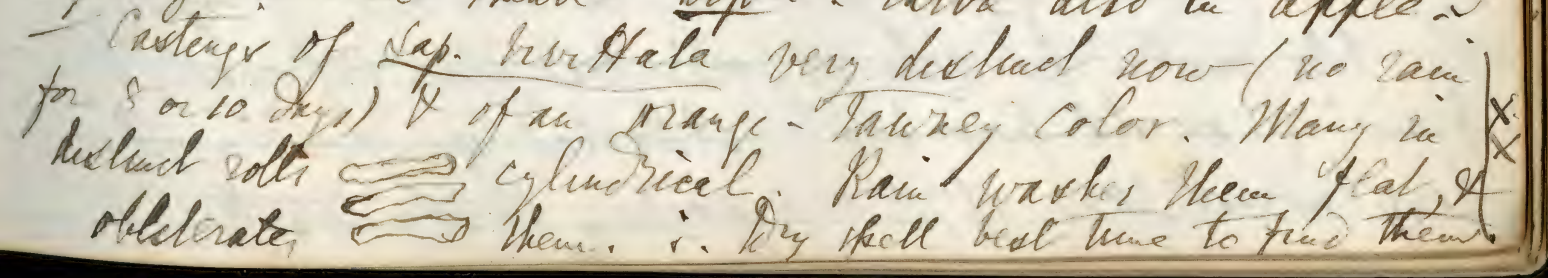 also in apple.
Castings of Sap. bivittata very distinct now (no rain
for 8 or 10 days) & of an orange-tawney color. Many in
distinct rolls cylindrical. Rain washes them flat, &
obliterates them. ∴ Dry spell best time to find them.
X
X